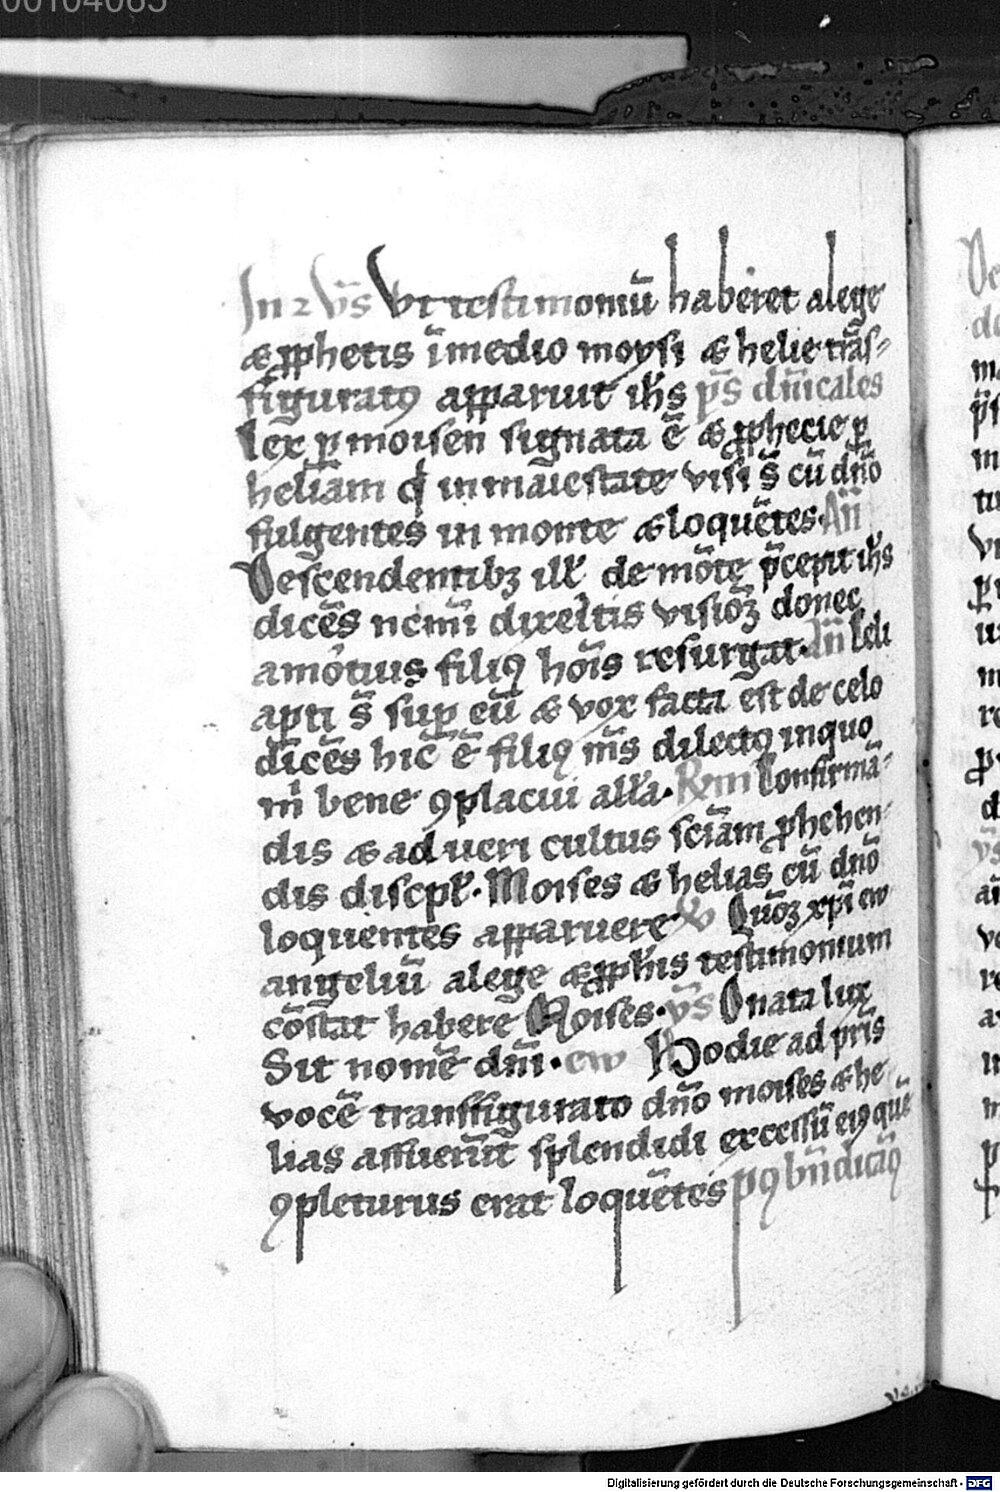 00104085
In 2 vs̄ Ut testimoniū haberet a lege
& ꝓphetis ī medio moysi & helie trās-
figuratꝯ apparuit ih̄s ps̄ dn̄icales
lex ꝑ moisen signata ē & ꝓphecie ꝑ
heliam ꝗ in maiestate visi s̄ cū dn̄o
fulgentes in monte & loquētes. An̄
Descendentibꝫ ill' de mōte p̄cepit ih̄s
dicēs nemī dixeritis visioꝫ donec
a mōtuis filiꝯ hoīs resurgat. An̄ Celi
apti s̄ sup eū & vox facta est de celo
dicēs hic ē filiꝯ ms̄ dilectꝯ in quo
m bene ꝯplacui all'a. Ry̅m Confirmā-
dis & ad veri cultus sciam phehen-
dis discpl'. Moises & helias cū dn̄o
loquentes apparuere Quōꝫ xpī ew
angeliū a lege & ꝓph'is testimonium
cōstat habere Moises. vs̄ O nata lux
Sit nomē dn̄i. ew Hodie ad pr̄is
vocē transfigurato dn̄o moises & he
lias affuerūt splendidi excessū eiꝯ quē
ꝯpleturus erat loquētes pꝯ bn̄dictiꝯ
Digitalisierung gefördert durch die Deutsche Forschungsgemeinschaft - DFG